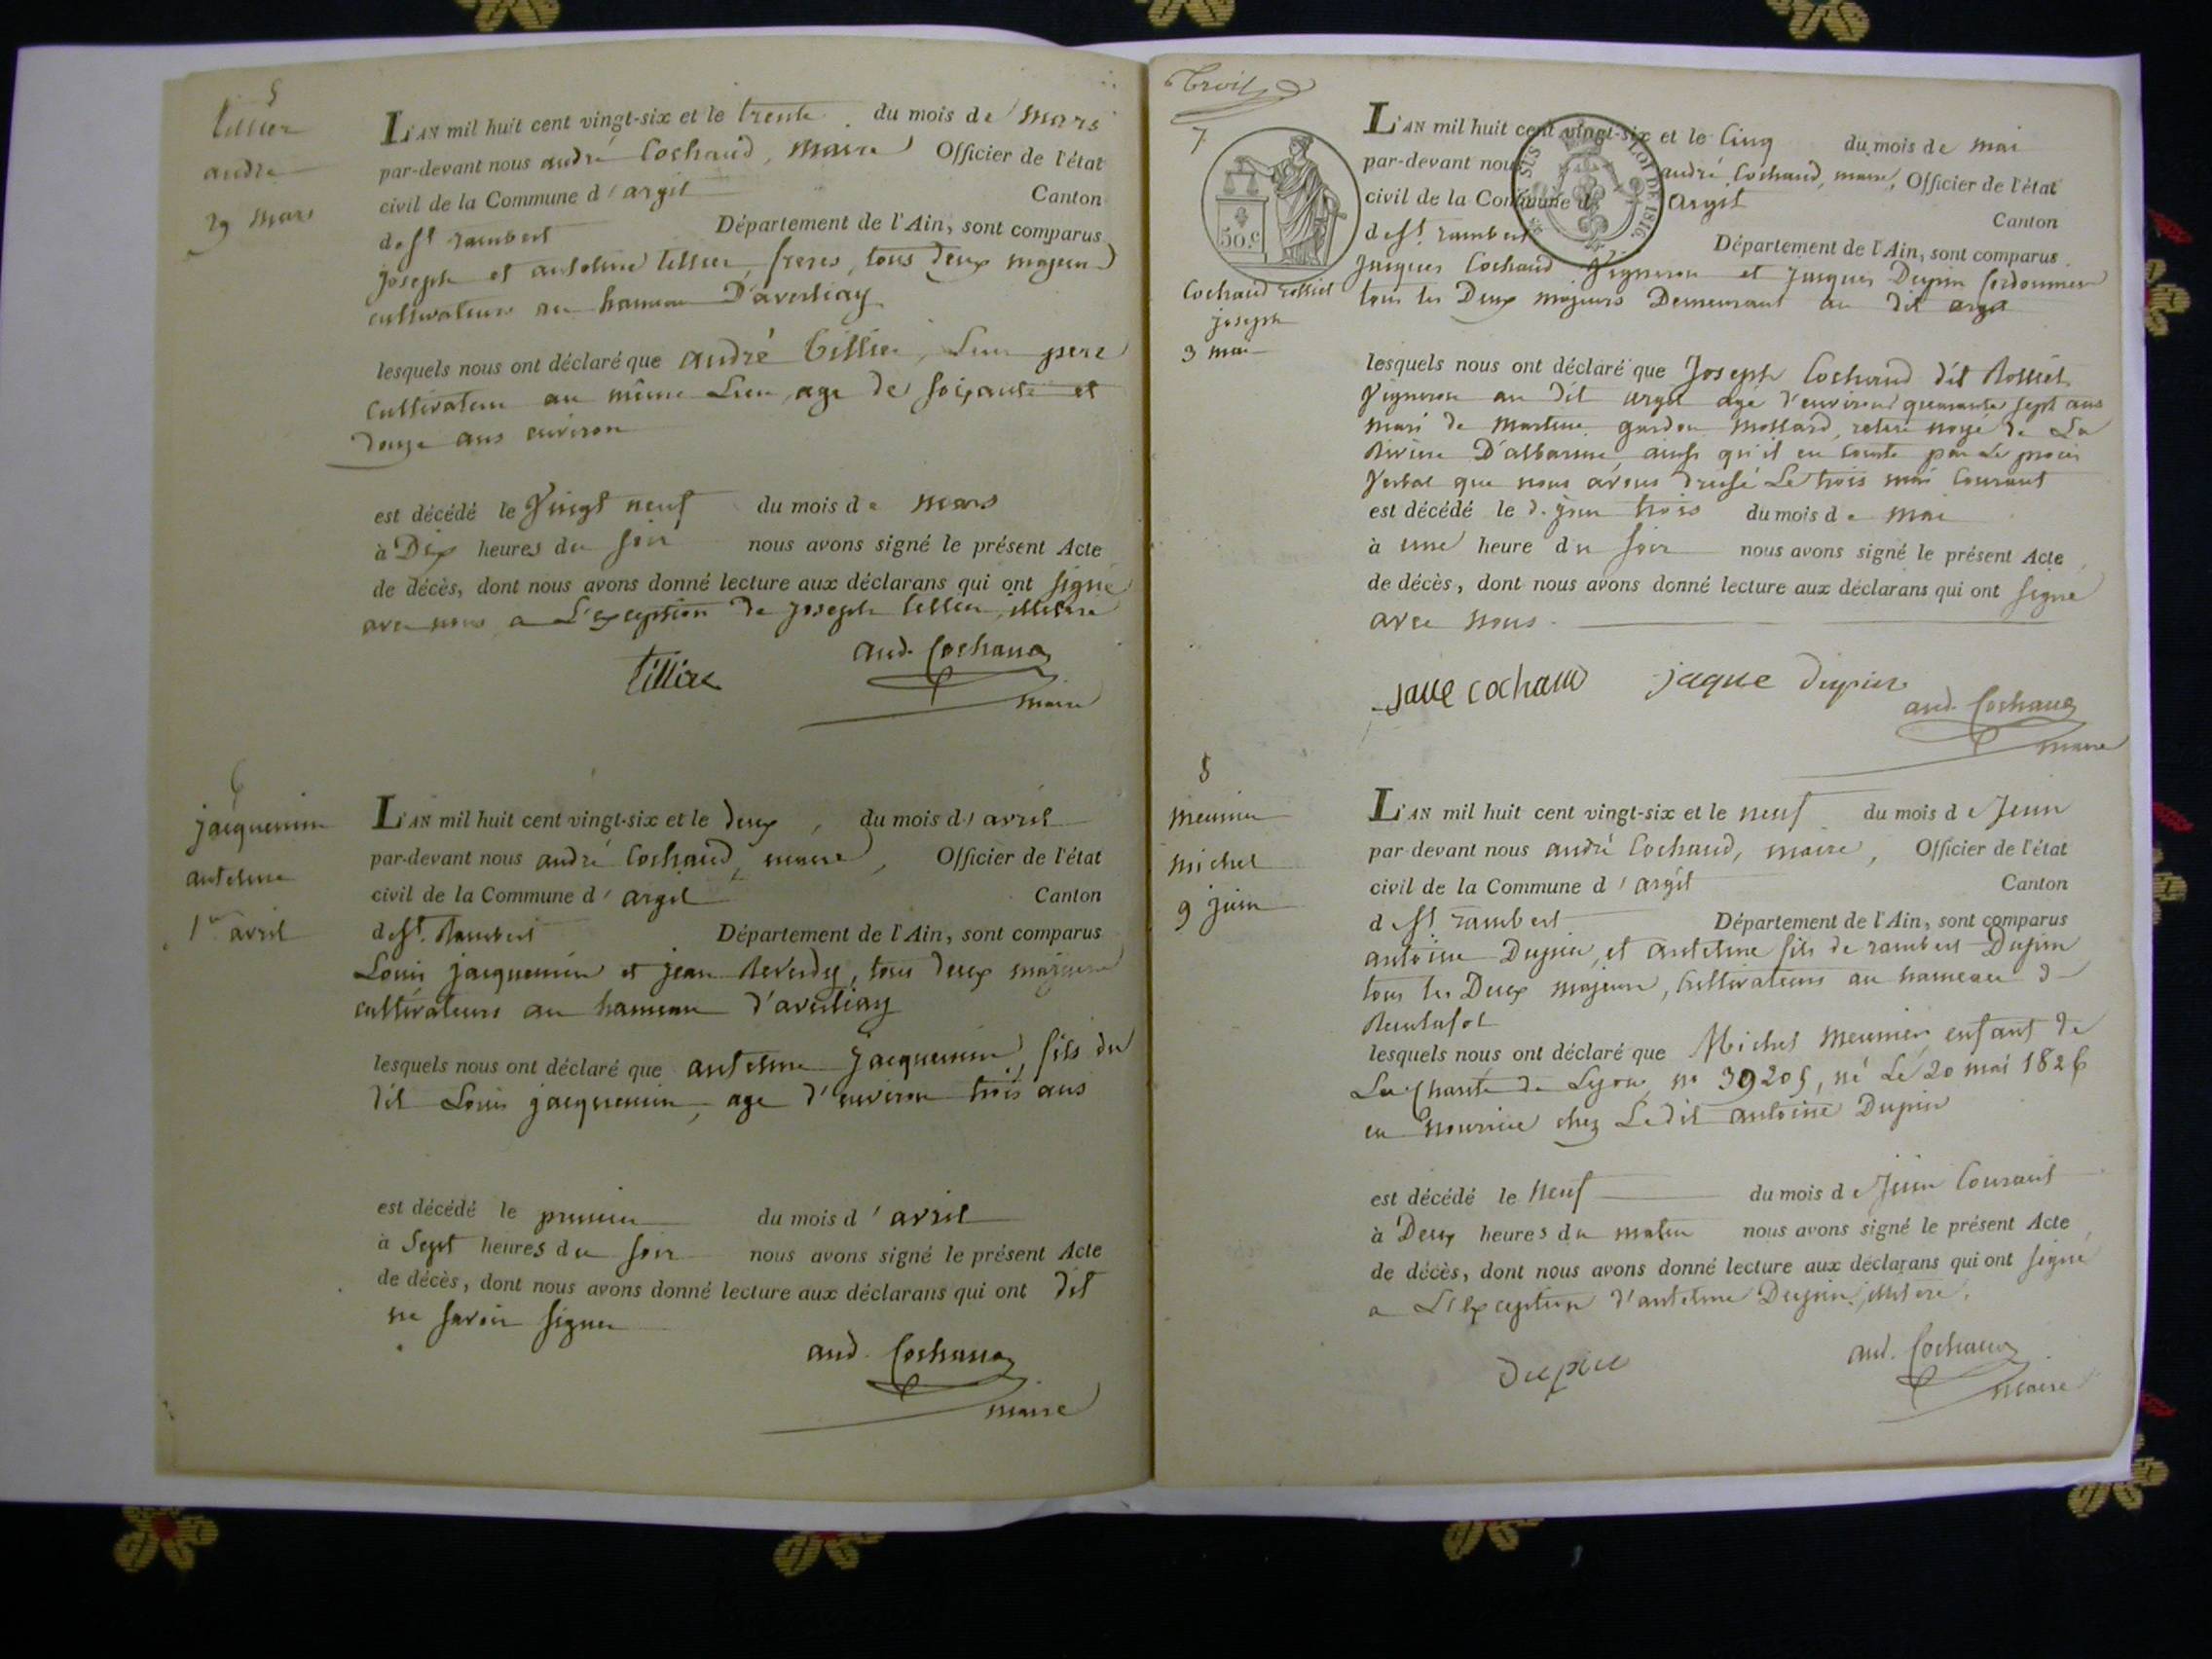 5
tillier
andré
29 mars
L'AN mil huit cent vingt-six et le trente du mois de mars
par-devant nous andré Cochaud, maire Officier de l'état
civil de la Commune d'argit Canton
de St rambert Département de l'Ain, sont comparus
joseph et antelme tillier, freres, tous deux majeurs
cultivateurs au hameau D'averliay
lesquels nous ont déclaré que andré tillier, Leur pere
Cultivateur au même Lieu, age de soixante et
douze ans environ
est décédé le Vingt neuf du mois de mars
à Dix heures du soir nous avons signé le présent Acte
de décès, dont nous avons donné lecture aux déclarans qui ont signé
avec nous a L'exception de joseph tillier, illitéré
tillier and. Cochaud
maire
6
jacquemin
antelme
1er avril
L'AN mil huit cent vingt-six et le deux, du mois d'avril
par-devant nous andré Cochaud, maire, Officier de l'état
civil de la Commune d'argit Canton
de St. Rambert Département de l'Ain, sont comparus
Louis jacquemin et jean Reverdy, tous deux majeurs
cultivateurs au hameau d'averliay
lesquels nous ont déclaré que antelme Jacquemin, fils du
dit Louis jacquemin, age d'environ trois ans
est décédé le premier du mois d'avril
à Sept heures du soir nous avons signé le présent Acte
de décès, dont nous avons donné lecture aux déclarans qui ont dit
ne savoir signer
and. Cochaud
maire
trois
7
50.c
SUS LOI DE 1816.
Cochaud rolliet
joseph
3 mai
L'AN mil huit cent vingt-six et le Cinq du mois de mai
par-devant nous andré Cochaud, maire, Officier de l'état
civil de la Commune d'Argit Canton
de St. rambert Département de l'Ain, sont comparus
Jacques Cochaud Vigneron et jacques Dupin Cordonnier
tous les Deux majeurs Demeurant au dit argit
lesquels nous ont déclaré que Joseph Cochaud dit Rolliet
Vigneron au dit argit agé d'environ quarante sept ans
mari de marteme gardon mollard, retiré noyé de La
Riviere D'albarine, ainsi qu'il en conste par Le procés
Verbal que nous avons dressé Le trois mai Courant
est décédé le d. jour trois du mois de mai
à une heure du soir nous avons signé le présent Acte
de décès, dont nous avons donné lecture aux déclarans qui ont signé
avec nous.
jaque cochaud jaque dupin
and. Cochaud
maire
8
meunier
michel
9 juin
L'AN mil huit cent vingt-six et le neuf du mois de Juin
par-devant nous andré Cochaud, maire, Officier de l'état
civil de la Commune d'argit Canton
de St rambert Département de l'Ain, sont comparus
antoine Dupin, et antelme fils de rambert Dupin
tous les Deux majeurs, Cultivateurs au hameau de
Reculafol
lesquels nous ont déclaré que Michel meunier enfant de
La Charité de Lyon, no 39205, né Le 20 mai 1826
en nourrice chez Ledit antoine Dupin
est décédé le neuf du mois de Juin Courant
à Deux heures du matin nous avons signé le présent Acte
de décès, dont nous avons donné lecture aux déclarans qui ont signé
a L'exception d'antelme Dupin, illitéré.
dupin and. Cochaud
maire